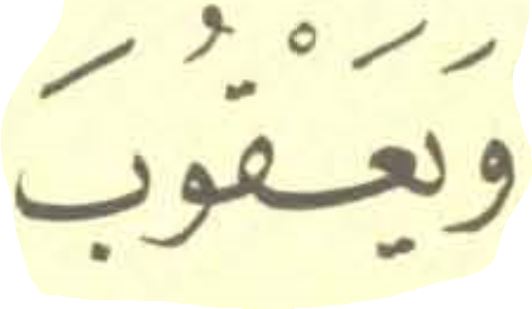 وَيَعْقُوبَ